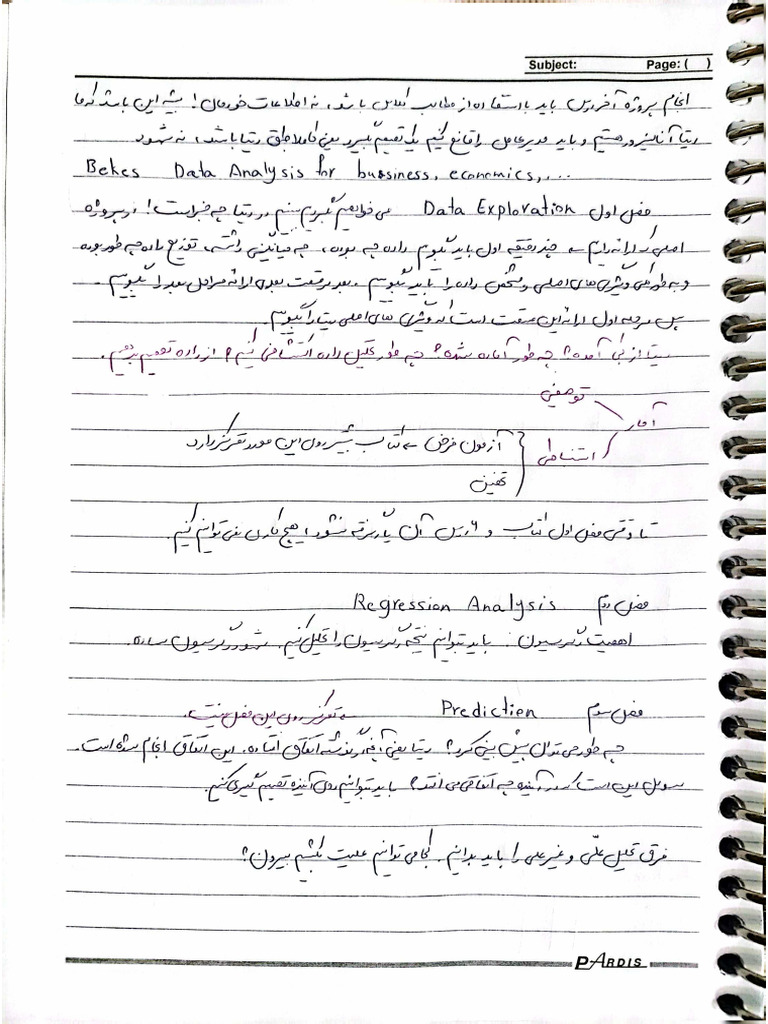 Subject:
Page: ( )
انجام پروژه آخر درس باید با استفاده از مطالب کلاس باشد، نه اطلاعات خودمان! شبیه این باشد که ما
دیتا آنالیزور هستیم و باید مدیرعامل را قانع کنیم یک تصمیم بگیرد یعنی کاملا طبق دیتا باشد، نه شهود
Bekes Data Analysis for bussiness, economics, ...
فصل اول Data Exploration می‌خواهیم بگیریم ببینیم در دیتا چه خبر است! در پروژه
اصلی که ارائه دادیم → چند دقیقه اول باید بگوییم داده چه بوده، چه میانگینی داشته، توزیع داده چه طور بوده
و به طور کلی ویژگی های اصلی و مشخص داده را باید بگوییم. بعد در قسمت بعدی ارائه مراحل بعد را بگوییم.
پس مرحله اول ارائه این قسمت است که ویژگی های اصلی دیتا را بگوییم.
دیتا از کجا آمده؟ چه طور آماده شده؟ چه طور تحلیل داده اکتشافی کنیم؟ از داده تعمیم بدهیم.
آمار
توصیفی
استنباطی
آزمون فرض → کتاب بیشتر روی این مورد تمرکز دارد
تخمین
تا وقتی فصل اول کتاب و 6 درس آن یاد گرفته نشود، هیچ کاری نمی توانیم کنیم.
فصل دوم Regression Analysis
اهمیت رگرسیون: باید بتوانیم نتیجه رگرسیون را تحلیل کنیم. شهود رگرسیون ساده.
فصل سوم Prediction → تمرکز روی این فصل نیست.
چه طور می توان پیش بینی کرد؟ دیتا یعنی آنچه در گذشته اتفاق افتاده. این اتفاق انجام شده است.
سوال این است که در آینده چه اتفاقی می افتد؟ باید بتوانیم روی آینده تصمیم گیری کنیم.
فرق تحلیل علّی و غیرعلی را باید بدانیم. کجا می توانیم علیت بکشیم بیرون؟
PARDIS